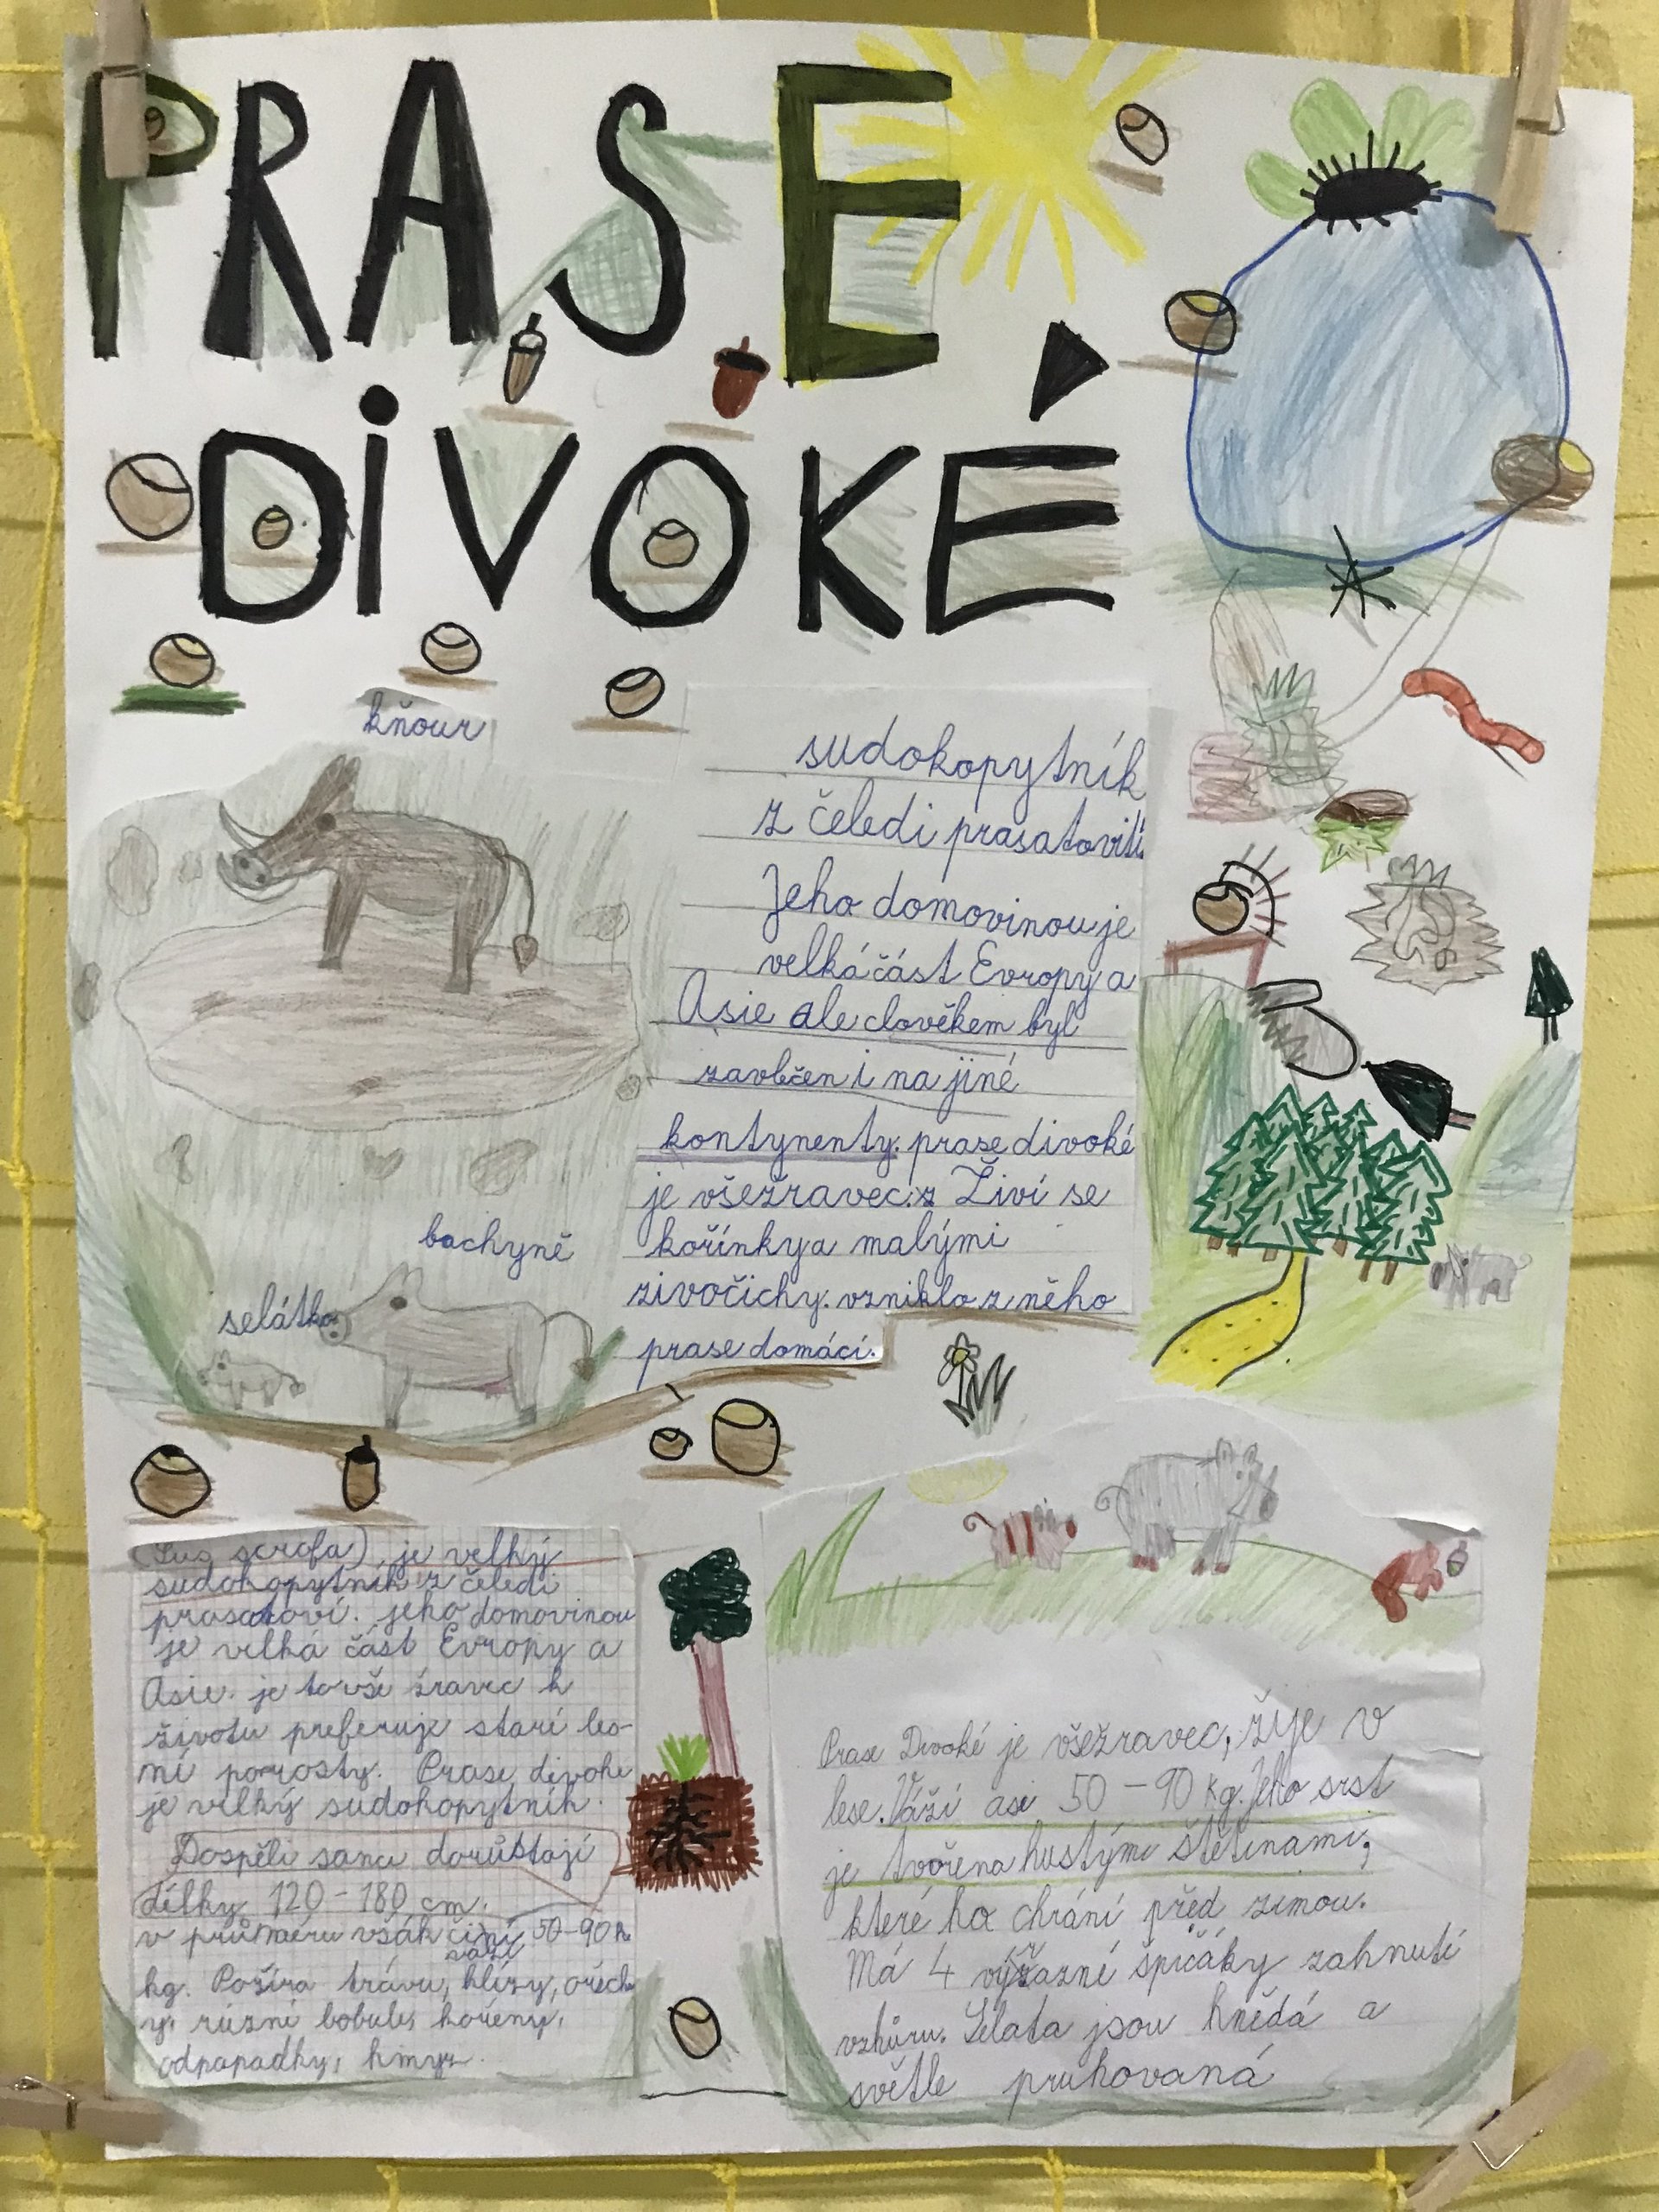 PRASE
DIVOKÉ
kňour
sudokopytník
z čeledi prasatovití
Jeho domovinou je
velká část Evropy a
Asie ale clověkem byl
zavlečen i na jiné
kontynenty. prase divoké
je všežravec. Živí se
kořínky a malými
zivočichy. vzniklo z něho
prase domácí.
bachyně
selátko
(Sus scrofa) je velký
sudokopytník z čeledi
prasatoví. jeho domovinou
je velká část Evropy a
Asie. je to vše žravec k
životu preferuje staré les-
ní porosty. Prase divoké
je velký sudokopytník.
Dospělí samci dorůstají
délky 120-180 cm.
v průměru všák činí 50-90 k
váží
kg. Požírá trávu, hlízy, ořech
y, různé bobule, kořeny,
odpapadky, hmyz.
Prase Divoké je všežravec, žije v
lese. Váží asi 50-90 kg. Jeho srst
je tvořena hustými štětinami,
které ho chrání před zimou.
Má 4 výrazné špičáky zahnuté
vzhůru. Selata jsou hnědá a
světle pruhovaná